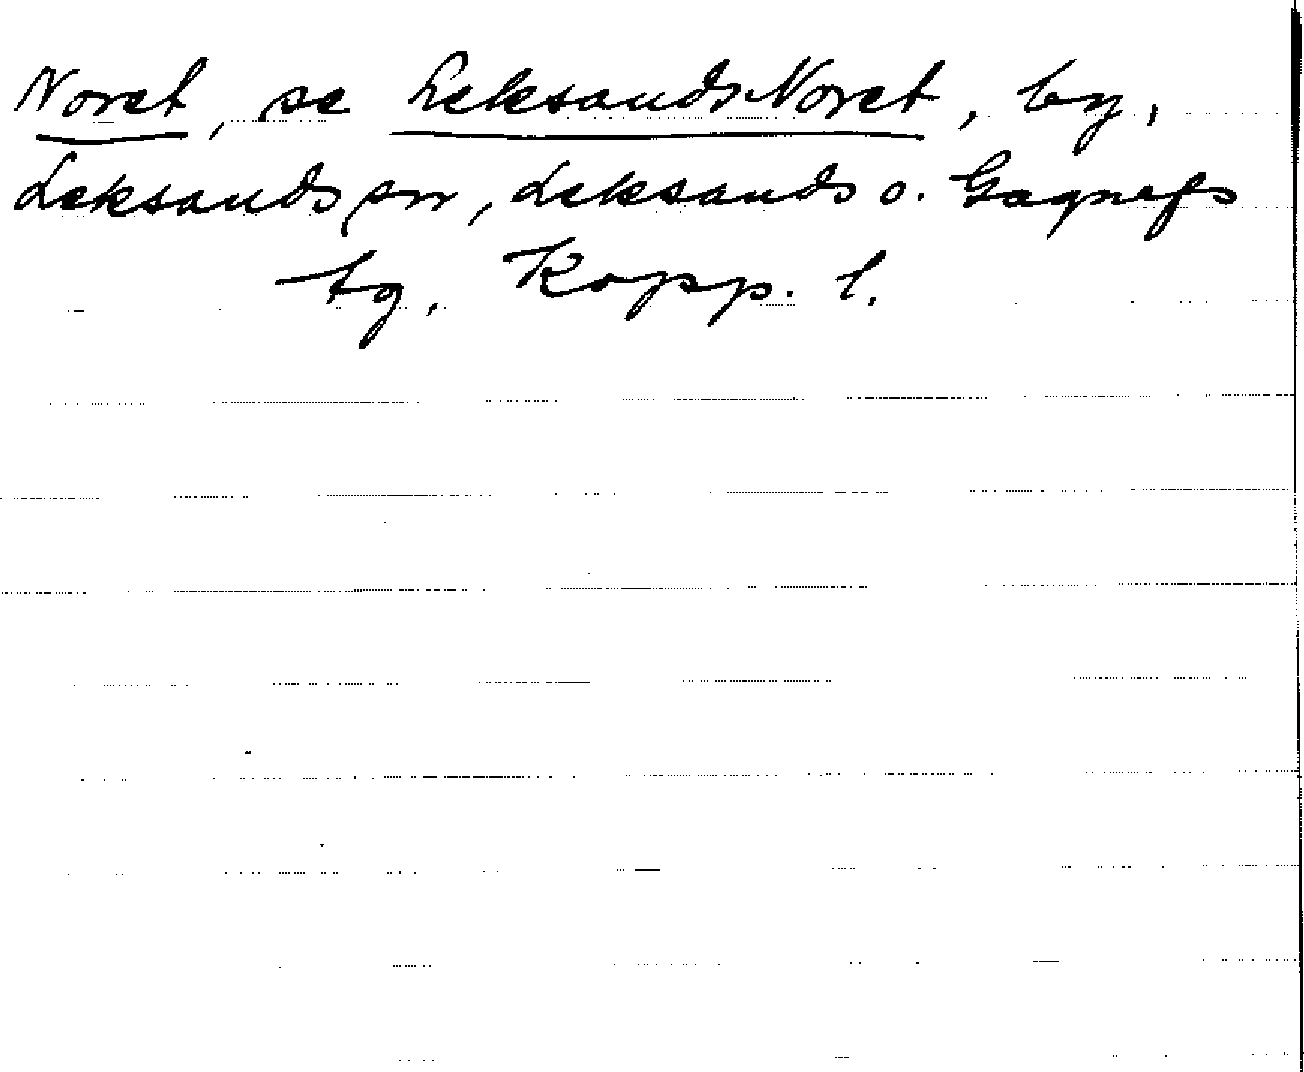 Noret, se Leksands-Noret, by,
Leksands sn, Leksands o. Gagnefs
tg, Kopp. l.